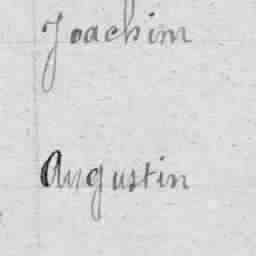 Joachim
Augustin